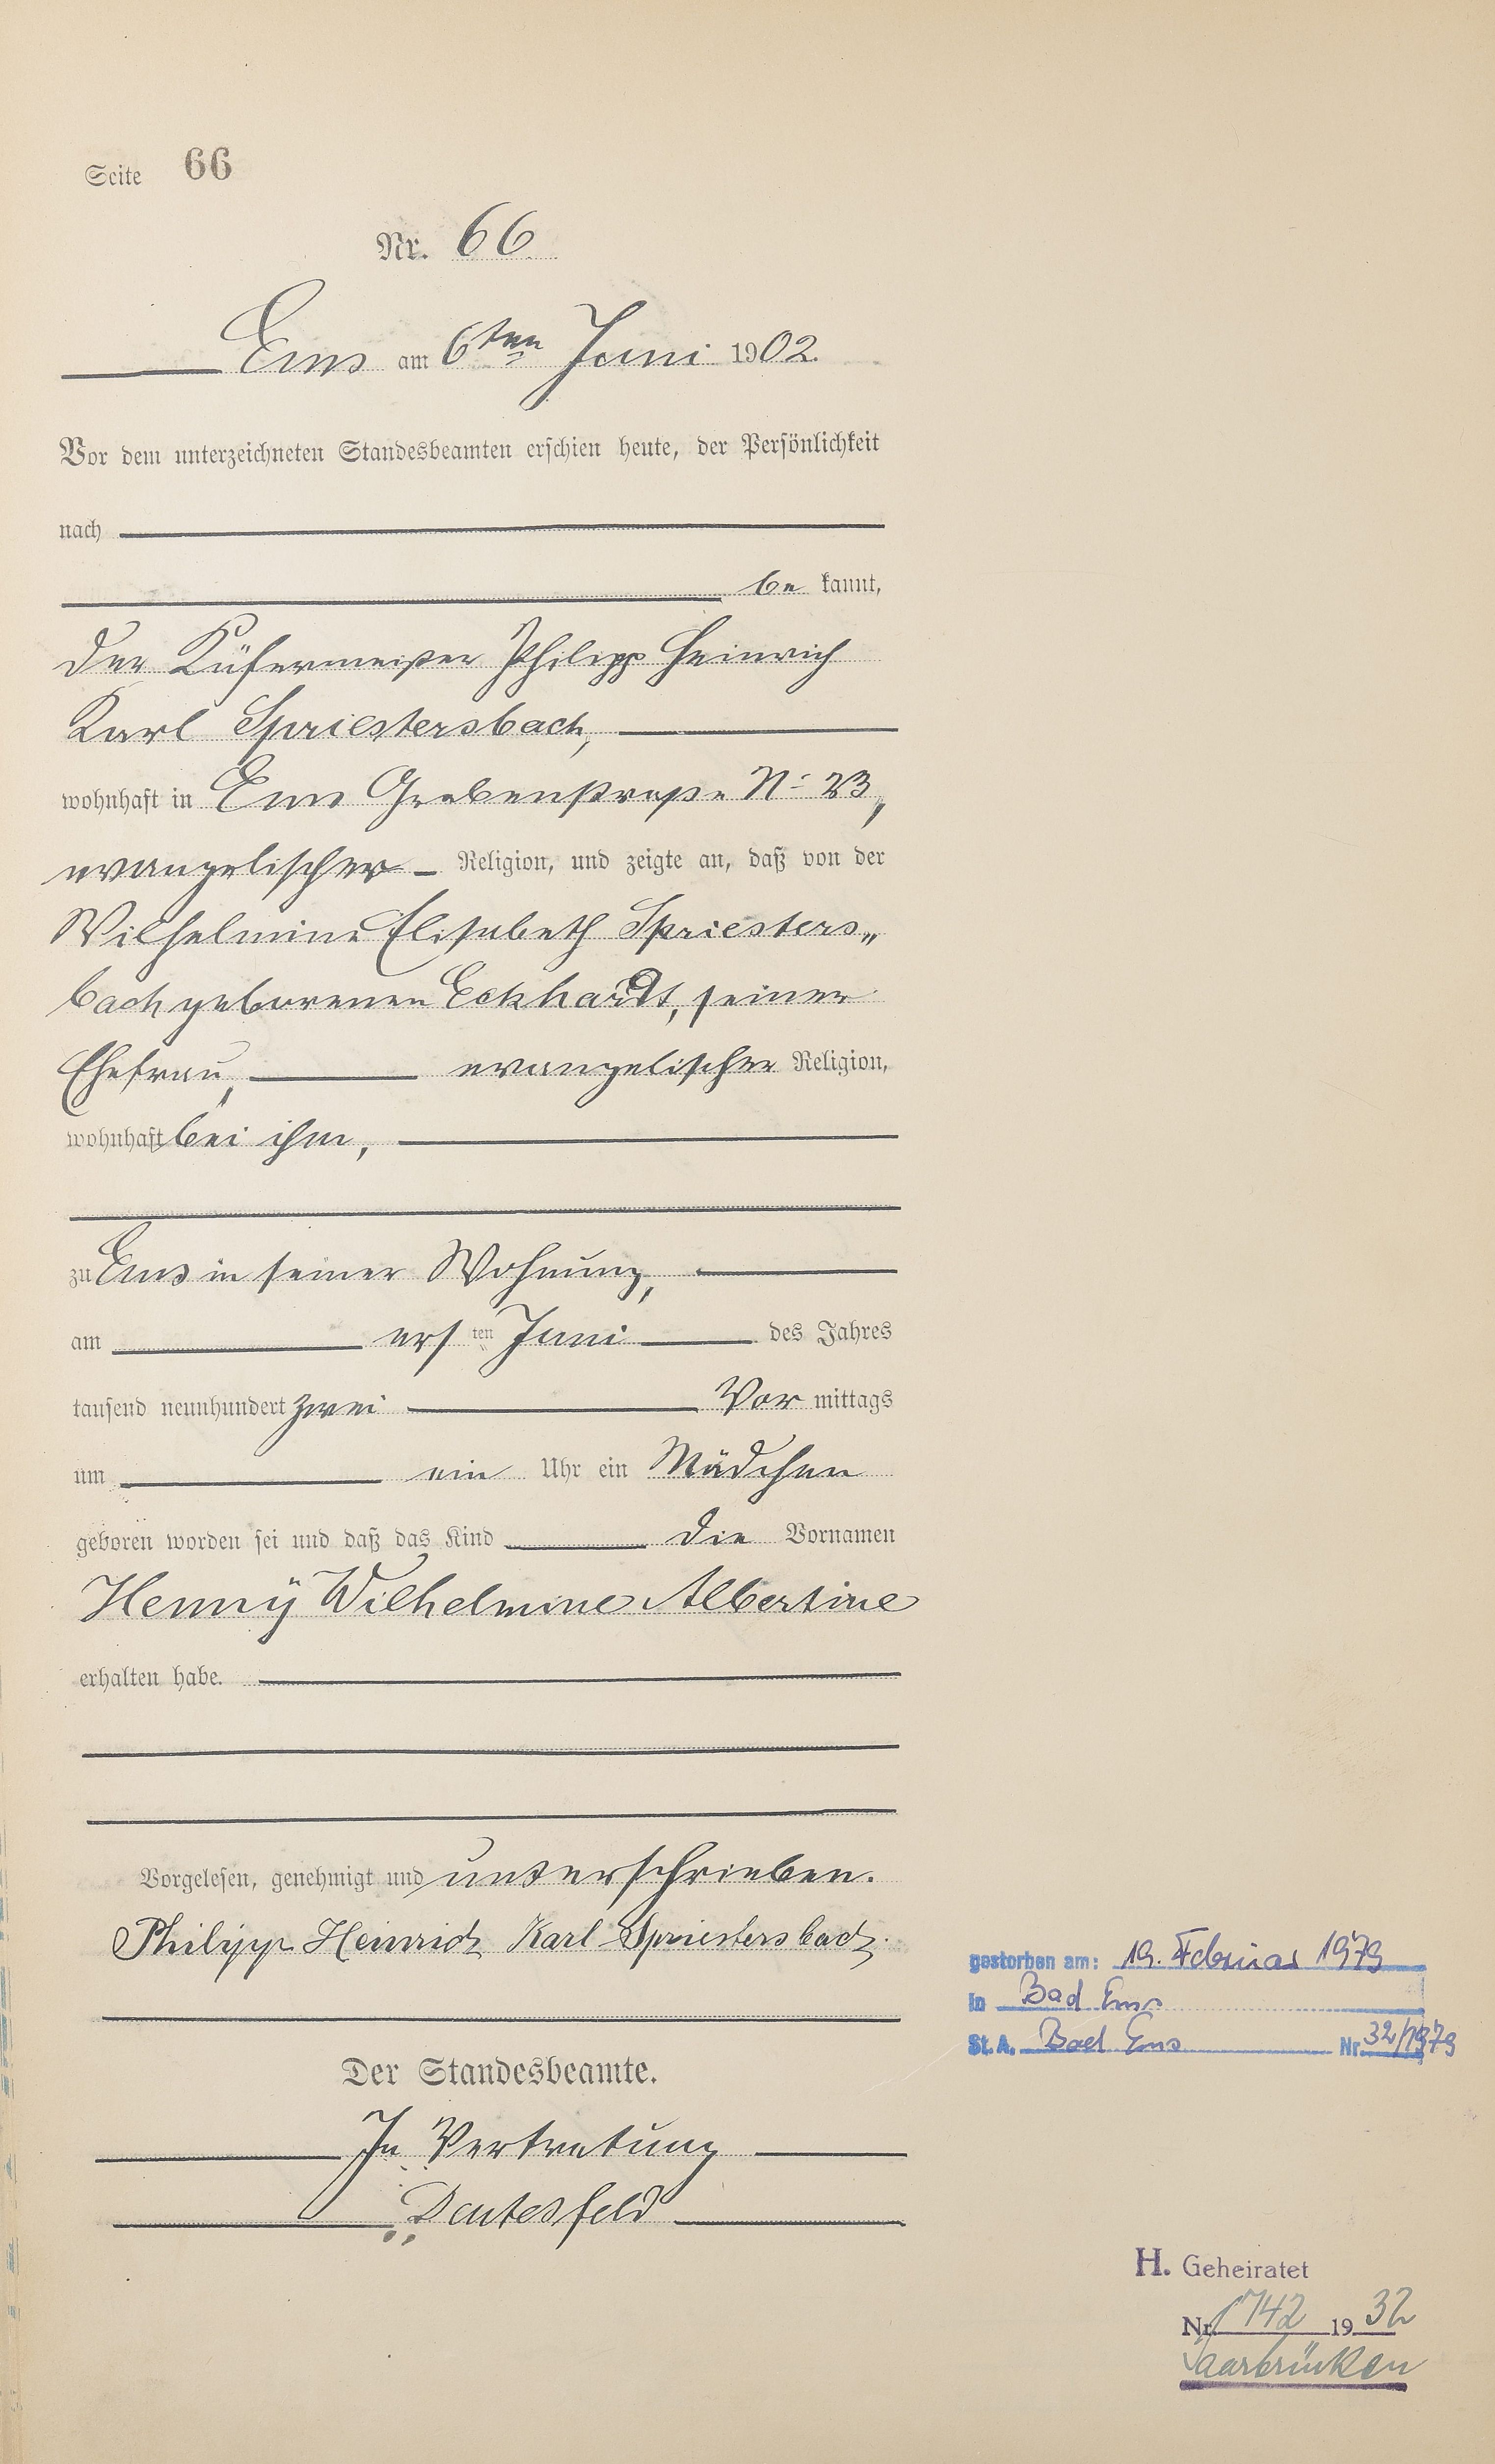 Seite 66
Nr. 66.
Ems am 6ten Juni 1902.
Vor dem unterzeichneten Standesbeamten erschien heute, der Persönlichkeit
nach
be kannt,
der Küfermeister Philipp Heinrich
Karl Spriestersbach,
wohnhaft in Ems Grabenstraße No 23,
evangelischer Religion, und zeigte an, daß von der
Wilhelmine Elisabeth Spriesters„
bach geborenen Eckhardt, seiner
Ehefrau, evangelischer Religion,
wohnhaft bei ihm,
zu Ems in seiner Wohnung,
am ersten Juni des Jahres
tausend neunhundert zwei Vor mittags
um ein Uhr ein Mädchen
geboren worden sei und daß das Kind die Vornamen
Hennÿ Wilhelmine Albertine
erhalten habe.
Vorgelesen, genehmigt und unterschrieben.
Philipp Heinrich Karl Spriestersbach.
Der Standesbeamte.
In Vertretung
Deutesfeld
gestorben am: 19. Februar 1979
in Bad Ems
St. A. Bad Ems Nr. 32/1979
H. Geheiratet
Nr. 1742 1932
Saarbrücken